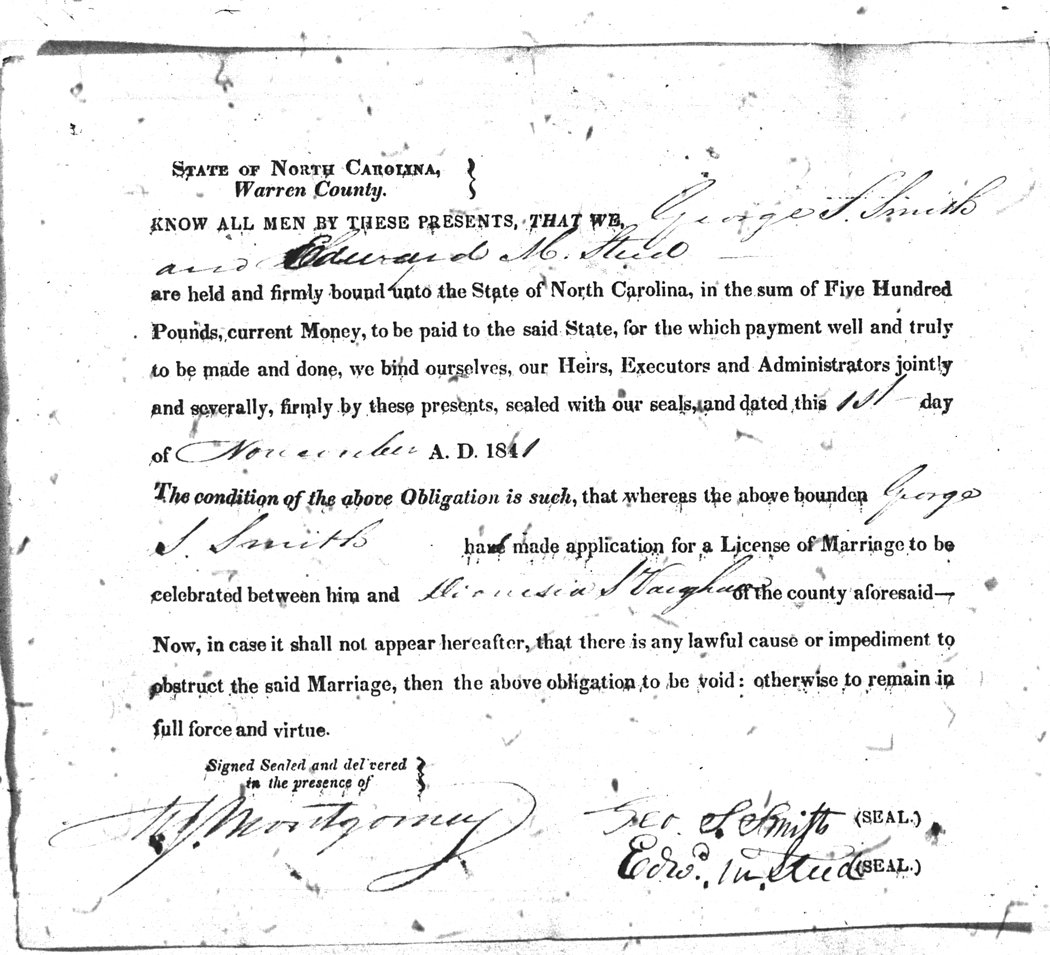 STATE OF NORTH CAROLINA,
Warren County.
KNOW ALL MEN BY THESE PRESENTS, THAT WE, George S. Smith
and Edward M. Steed
are held and firmly bound unto the State of North Carolina, in the sum of Five Hundred
Pounds, current Money, to be paid to the said State, for the which payment well and truly
to be made and done, we bind ourselves, our Heirs, Executors and Administrators jointly
and severally, firmly by these presents, sealed with our seals, and dated this 1st day
of November A. D. 1841
The condition of the above Obligation is such, that whereas the above bounden George
S. Smith has made application for a License of Marriage to be
celebrated between him and Dionesia S Vaughan of the county aforesaid—
Now, in case it shall not appear hereafter, that there is any lawful cause or impediment to
obstruct the said Marriage, then the above obligation to be void: otherwise to remain in
full force and virtue.
Signed Sealed and delivered
in the presence of
Montgomery
Geo. S. Smith (SEAL.)
Edwd. M. Steed (SEAL.)